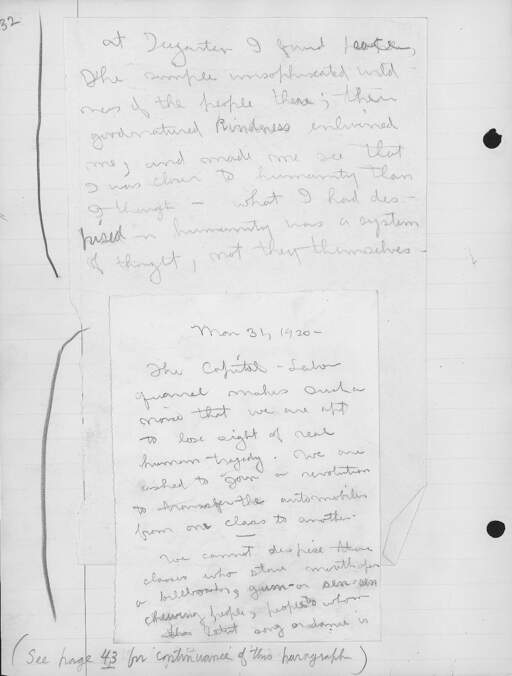 32
at Teegarten I found peace,
The simple unsophiscated wild-
ness of the people there; their
goodnatured Kindness enlivened
me, and made me see that
I was closer to humanity than
I thought – what I had des-
pised in humanity was a system
of thought, not they themselves –
Mar 31, 1920 –
The Capital-Labor
quarrel makes such a
noise that we are apt
to lose sight of real
human tragedy. We are
asked to join a revolution
to transfer the automobiles
from one class to another.
We cannot despise these
classes who stare
a billboards, gum or sen-sen
chewing people, people to whom
the latest song or dance is
(See page 43 for continuance of this paragraph)